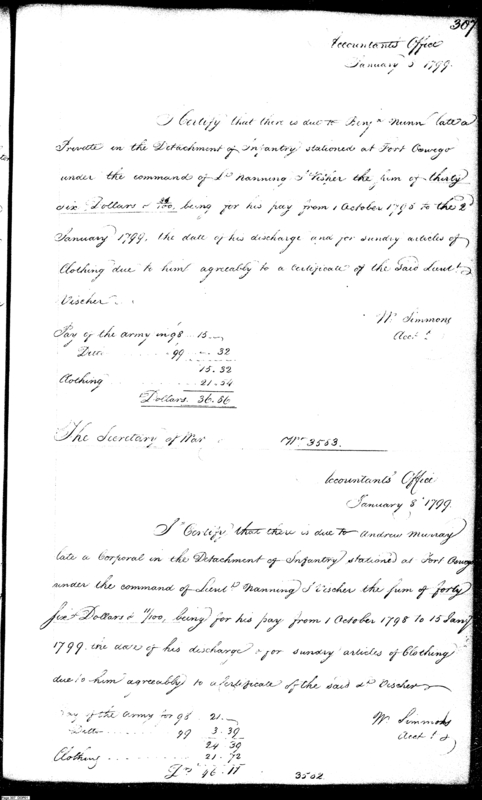 307
Accountants Office
January 5 1799.
I Certify that there is due to Benjn Nunn late a
Private in the Detachment of Infantry stationed at Fort Oswego
under the command of Lt Nanning J Visher the sum of thirty
six Dollars & /100, being for his pay from 1 October 1798 to the 2
January 1799, the date of his discharge and for sundry articles of
Clothing due to him agreeably to a certificate of the said Lieut.
Vischer
Wm Simmons
Acct.
Pay of the army in 98 15.
Ditto 99 .32
15.32
Clothing 21.54
Dollars 36.86
The Secretary of War No 3553.
Accountants Office
January 5 1799.
I Certify that there is due to Andrew Murray
late a Corporal in the Detachment of Infantry stationed at Fort Oswego
under the command of Lieut. Nanning J Vischer the sum of forty
six Dollars & 11/100, being for his pay from 1 October 1798 to 15 Jany
1799, the date of his discharge & for sundry articles of Clothing
due to him agreeably to a Certificate of the said Lt Vischer
Wm Simmons
Acct.
Pay of the Army for 98 21.
Ditto 99 3.39
24 39
Clothing 21.72
Ds 46.11
3552